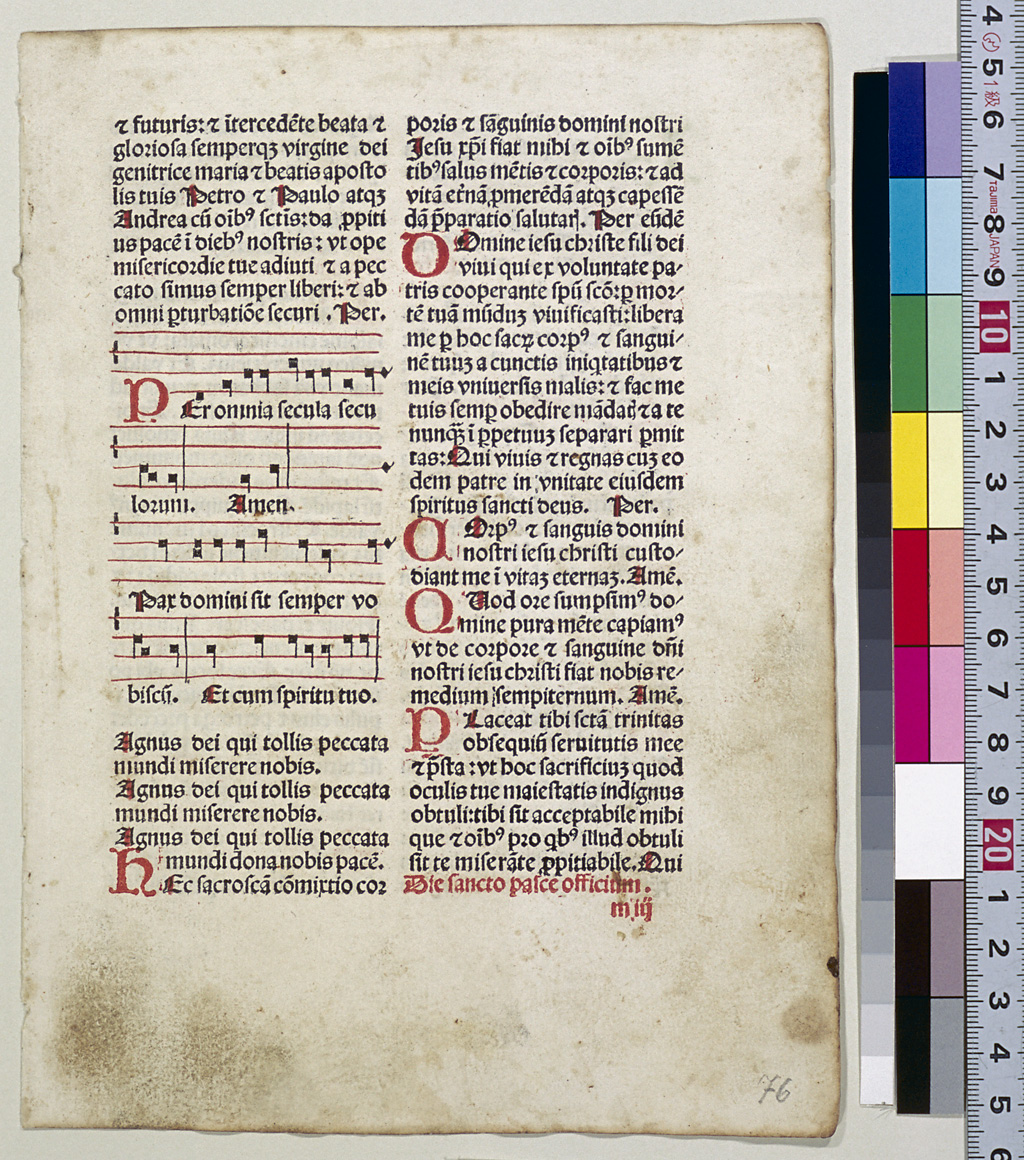 ⁊ futuris: ⁊ ītercedēte beata ⁊
gloriosa semperqꝫ virgine dei
genitrice maria ⁊ beatis aposto
lis tuis Petro ⁊ Paulo atqꝫ
Andrea cū oībꝰ sctīs: da ꝓpiti
us pacē ī diebꝰ nostris: vt ope
misericordie tue adiuti ⁊ a pec
cato simus semper liberi: ⁊ ab
omni ꝑturbatiōe securi. Per.
PEr omnia secula secu
lorum. Amen.
Pax domini sit semper vo
biscū. Et cum spiritu tuo.
Agnus dei qui tollis peccata
mundi miserere nobis.
Agnus dei qui tollis peccata
mundi miserere nobis.
Agnus dei qui tollis peccata
mundi dona nobis pacē.
HEc sacroscā cōmixtio cor
poris ⁊ sāguinis domini nostri
Jesu xp̄i fiat mihi ⁊ oībꝰ sumē
tibꝰ salus mētis ⁊ corporis: ⁊ ad
vitā etnā ꝓmerēdā atqꝫ capessē
dā p̄paratio salutaꝝ. Per eūdē
DOmine iesu christe fili dei
viui qui ex voluntate pa⸗
tris cooperante spū scō: ꝑ mor⸗
tē tuā mūduꝫ viuificasti: libera
me ꝑ hoc sacꝝ corpꝰ ⁊ sangui⸗
nē tuuꝫ a cunctis iniqtatibus ⁊
meis vniuersis malis: ⁊ fac me
tuis semꝑ obedire mādaꝰ ⁊ a te
nunqꝫ̄ ī ꝑpetuuꝫ separari ꝑmit
tas: Qui viuis ⁊ regnas cuꝫ eo
dem patre in vnitate eiusdem
spiritus sancti deus. Per.
COrpꝰ ⁊ sanguis domini
nostri iesu christi custo⸗
diant me ī vitaꝫ eternaꝫ. Amē.
QUod ore sumpsimꝰ do⸗
mine pura mēte capiamꝰ
vt de corpore ⁊ sanguine dn̄i
nostri iesu christi fiat nobis re⸗
medium sempiternum. Amē.
PLaceat tibi sctā trinitas
obsequiū seruitutis mee
⁊ p̄sta: vt hoc sacrificiuꝫ quod
oculis tue maiestatis indignus
obtuli: tibi sit acceptabile mihi
que ⁊ oībꝰ pro qbꝰ illud obtuli
sit te miserāte ꝓpitiabile. Qui
Die sancto pasce officium.
m iij
76
4 5 6 7 8 9 10 1 2 3 4 5 6 7 8 9 20 1 2 3 4 5 6
1級
Tajima JAPAN